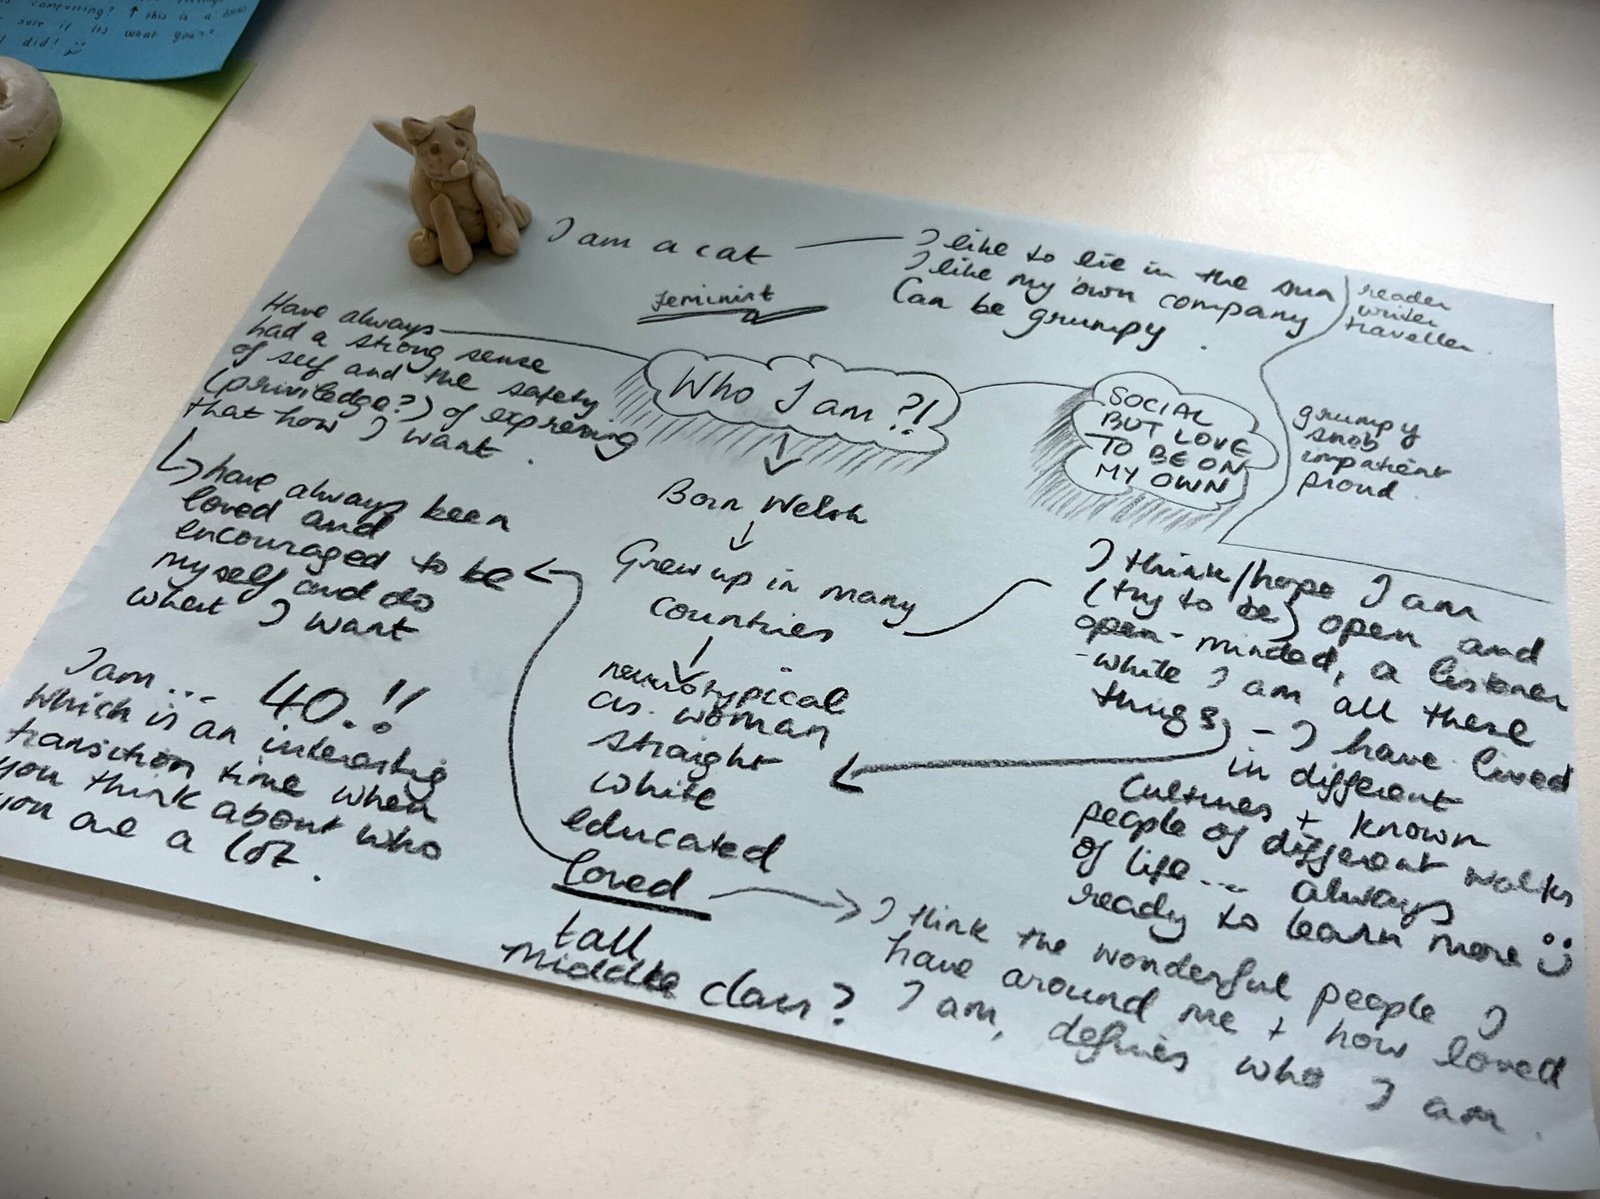 comparing? ↑ this is a
sure if its what you
did!
I am a cat
I like to lie in the sun
I like my own company
Can be grumpy.
reader
writer
traveller.
feminist
Have always
had a strong sense
of self and the safety
(priviledge?) of expressing
that how I want.
Who I am?!
SOCIAL
BUT LOVE
TO BE ON
MY OWN
grumpy
snob
impatient
proud.
↳ have always been
loved and
encouraged to be
myself and do
what I want
Born Welsh
↓
Grew up in many
countries
↓
neurotypical
cis. woman
straight
white
educated
loved
tall
middle class?
I think/hope I am
(try to be) open and
open-minded, a listener
- while I am all these
things - I have lived
in different
Cultures + known
people of different walks
of life.... always
ready to learn more
I am... 40.!!
Which is an interesting
transition time when
you think about who
you are a lot.
I think the wonderful people I
have around me + how loved
I am, defines who I am.